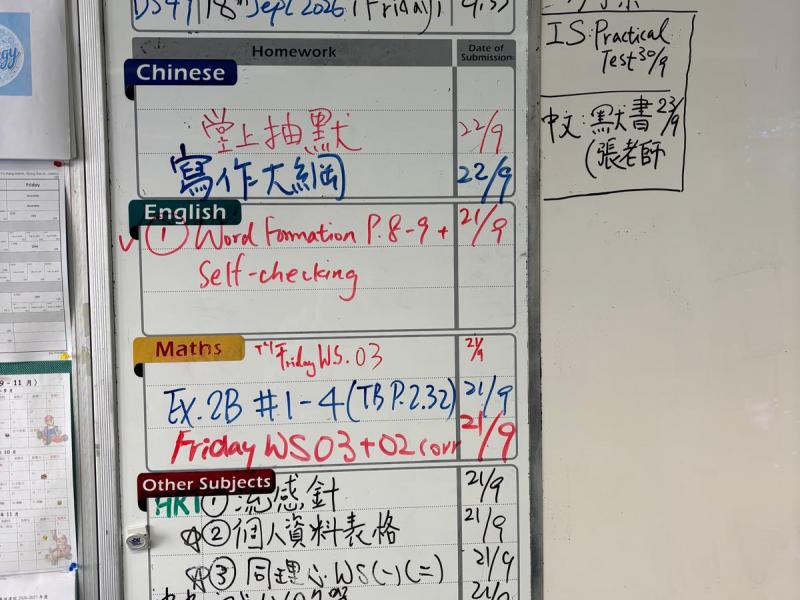 18th Sept 2026 (Friday)
Homework
Date of Submission
Chinese
堂上抽默 22/9
寫作大綱 22/9
English
① Word Formation P.8-9 + 21/9
Self-checking
Maths
Friday WS.03 21/9
Ex.2B #1-4 (TB P.2.32) 21/9
Friday WS03+02 corr 21/9
Other Subjects
HRT ① 流感針 21/9
② 個人資料表格 21/9
③ 同理心WS(一)(二) 21/9
IS: Practical
Test 30/9
中文: 默書 23/9
(張老師
Friday